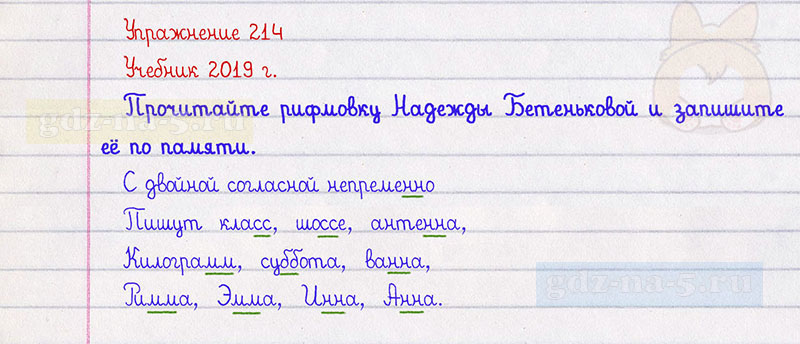 Упражнение 214
Учебник 2019 г.
Прочитайте рифмовку Надежды Бетеньковой и запишите
её по памяти.
gdz-na-5.ru
С двойной согласной непременно
Пишут класс, шоссе, антенна,
Килограмм, суббота, ванна,
gdz-na-5.ru
Римма, Эмма, Инна, Анна.